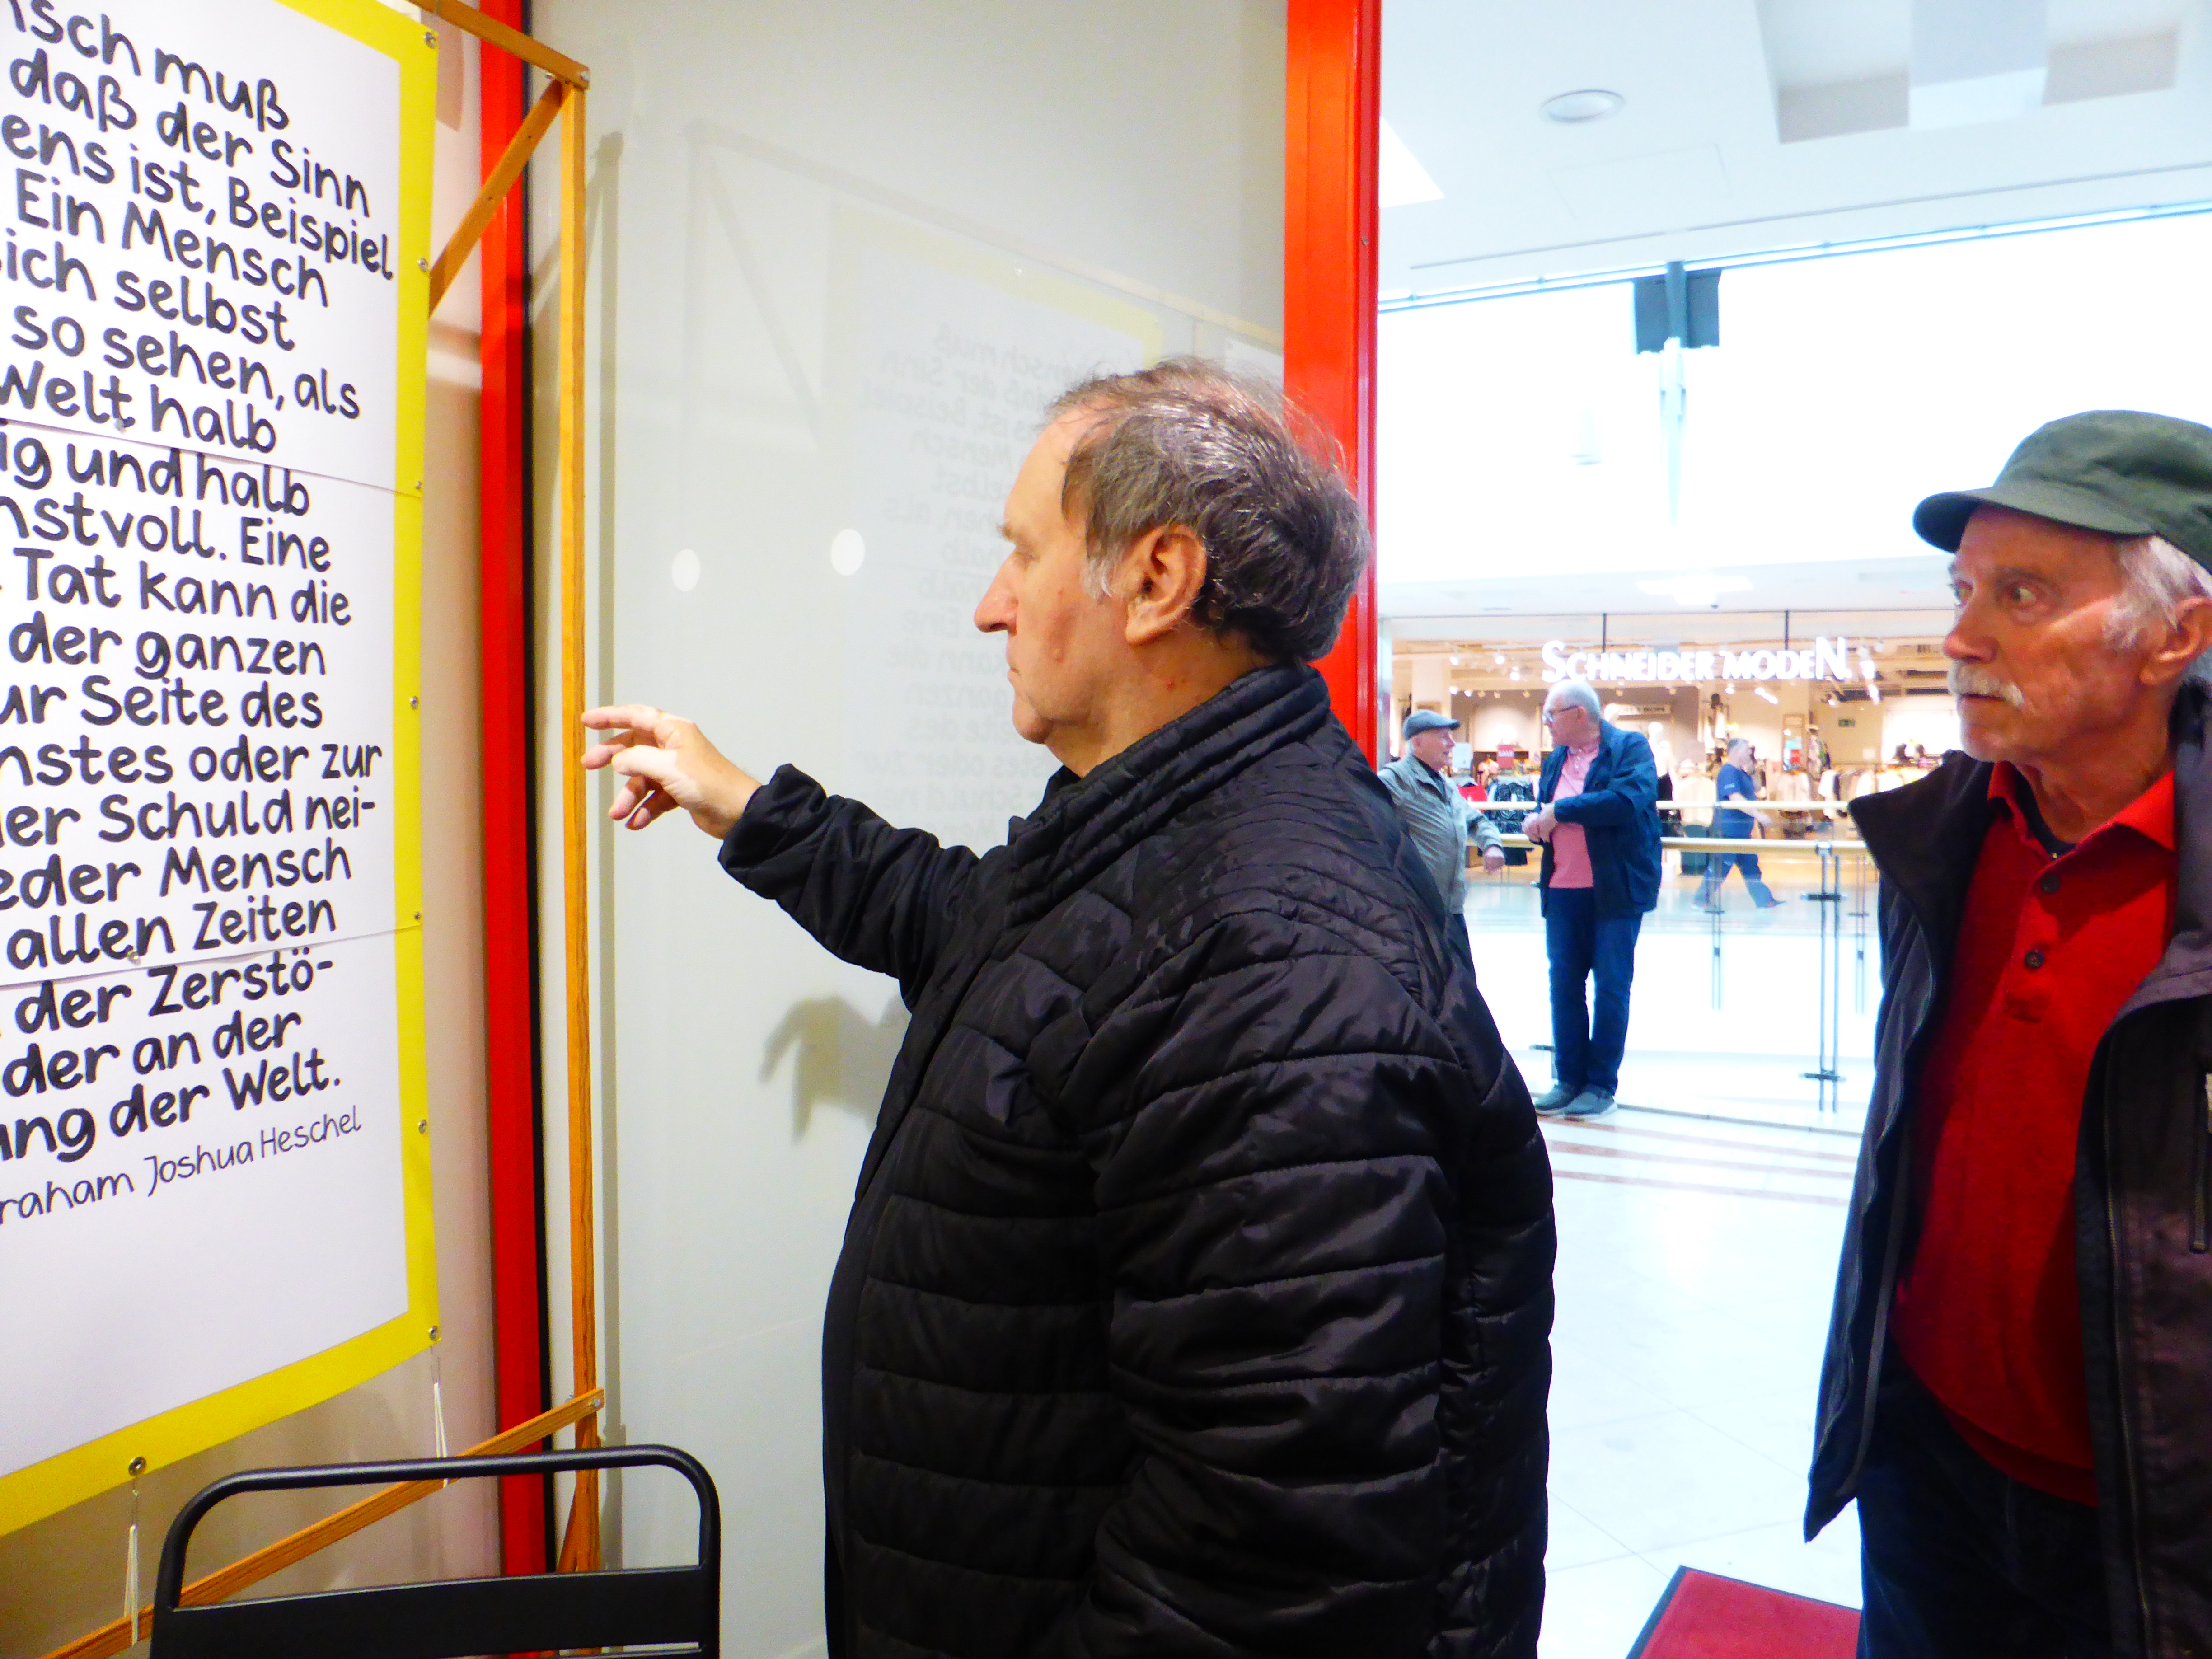 nsch muß
daß der Sinn
ens ist, Beispiel
Ein Mensch
sich selbst
so sehen, als
Welt halb
ig und halb
nstvoll. Eine
Tat kann die
der ganzen
ur Seite des
nstes oder zur
der Schuld nei-
eder Mensch
allen Zeiten
der Zerstö-
der an der
ung der Welt.
raham Joshua Heschel
SCHNEIDER MODEN